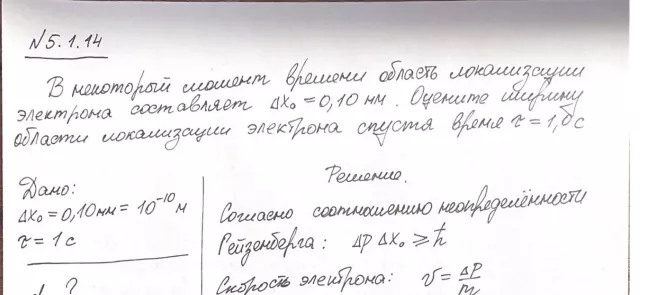 N 5.1.14
В некоторый момент времени область локализации
электрона составляет ΔX₀ = 0,10 нм. Оцените ширину
области локализации электрона спустя время τ = 1,0 с
Дано:
ΔX₀ = 0,10 нм = 10⁻¹⁰ м
τ = 1 с
?
Решение.
Согласно соотношению неопределённости
Гейзенберга: ΔP ΔX₀ ⩾ ħ
Скорость электрона: v = ΔP/m